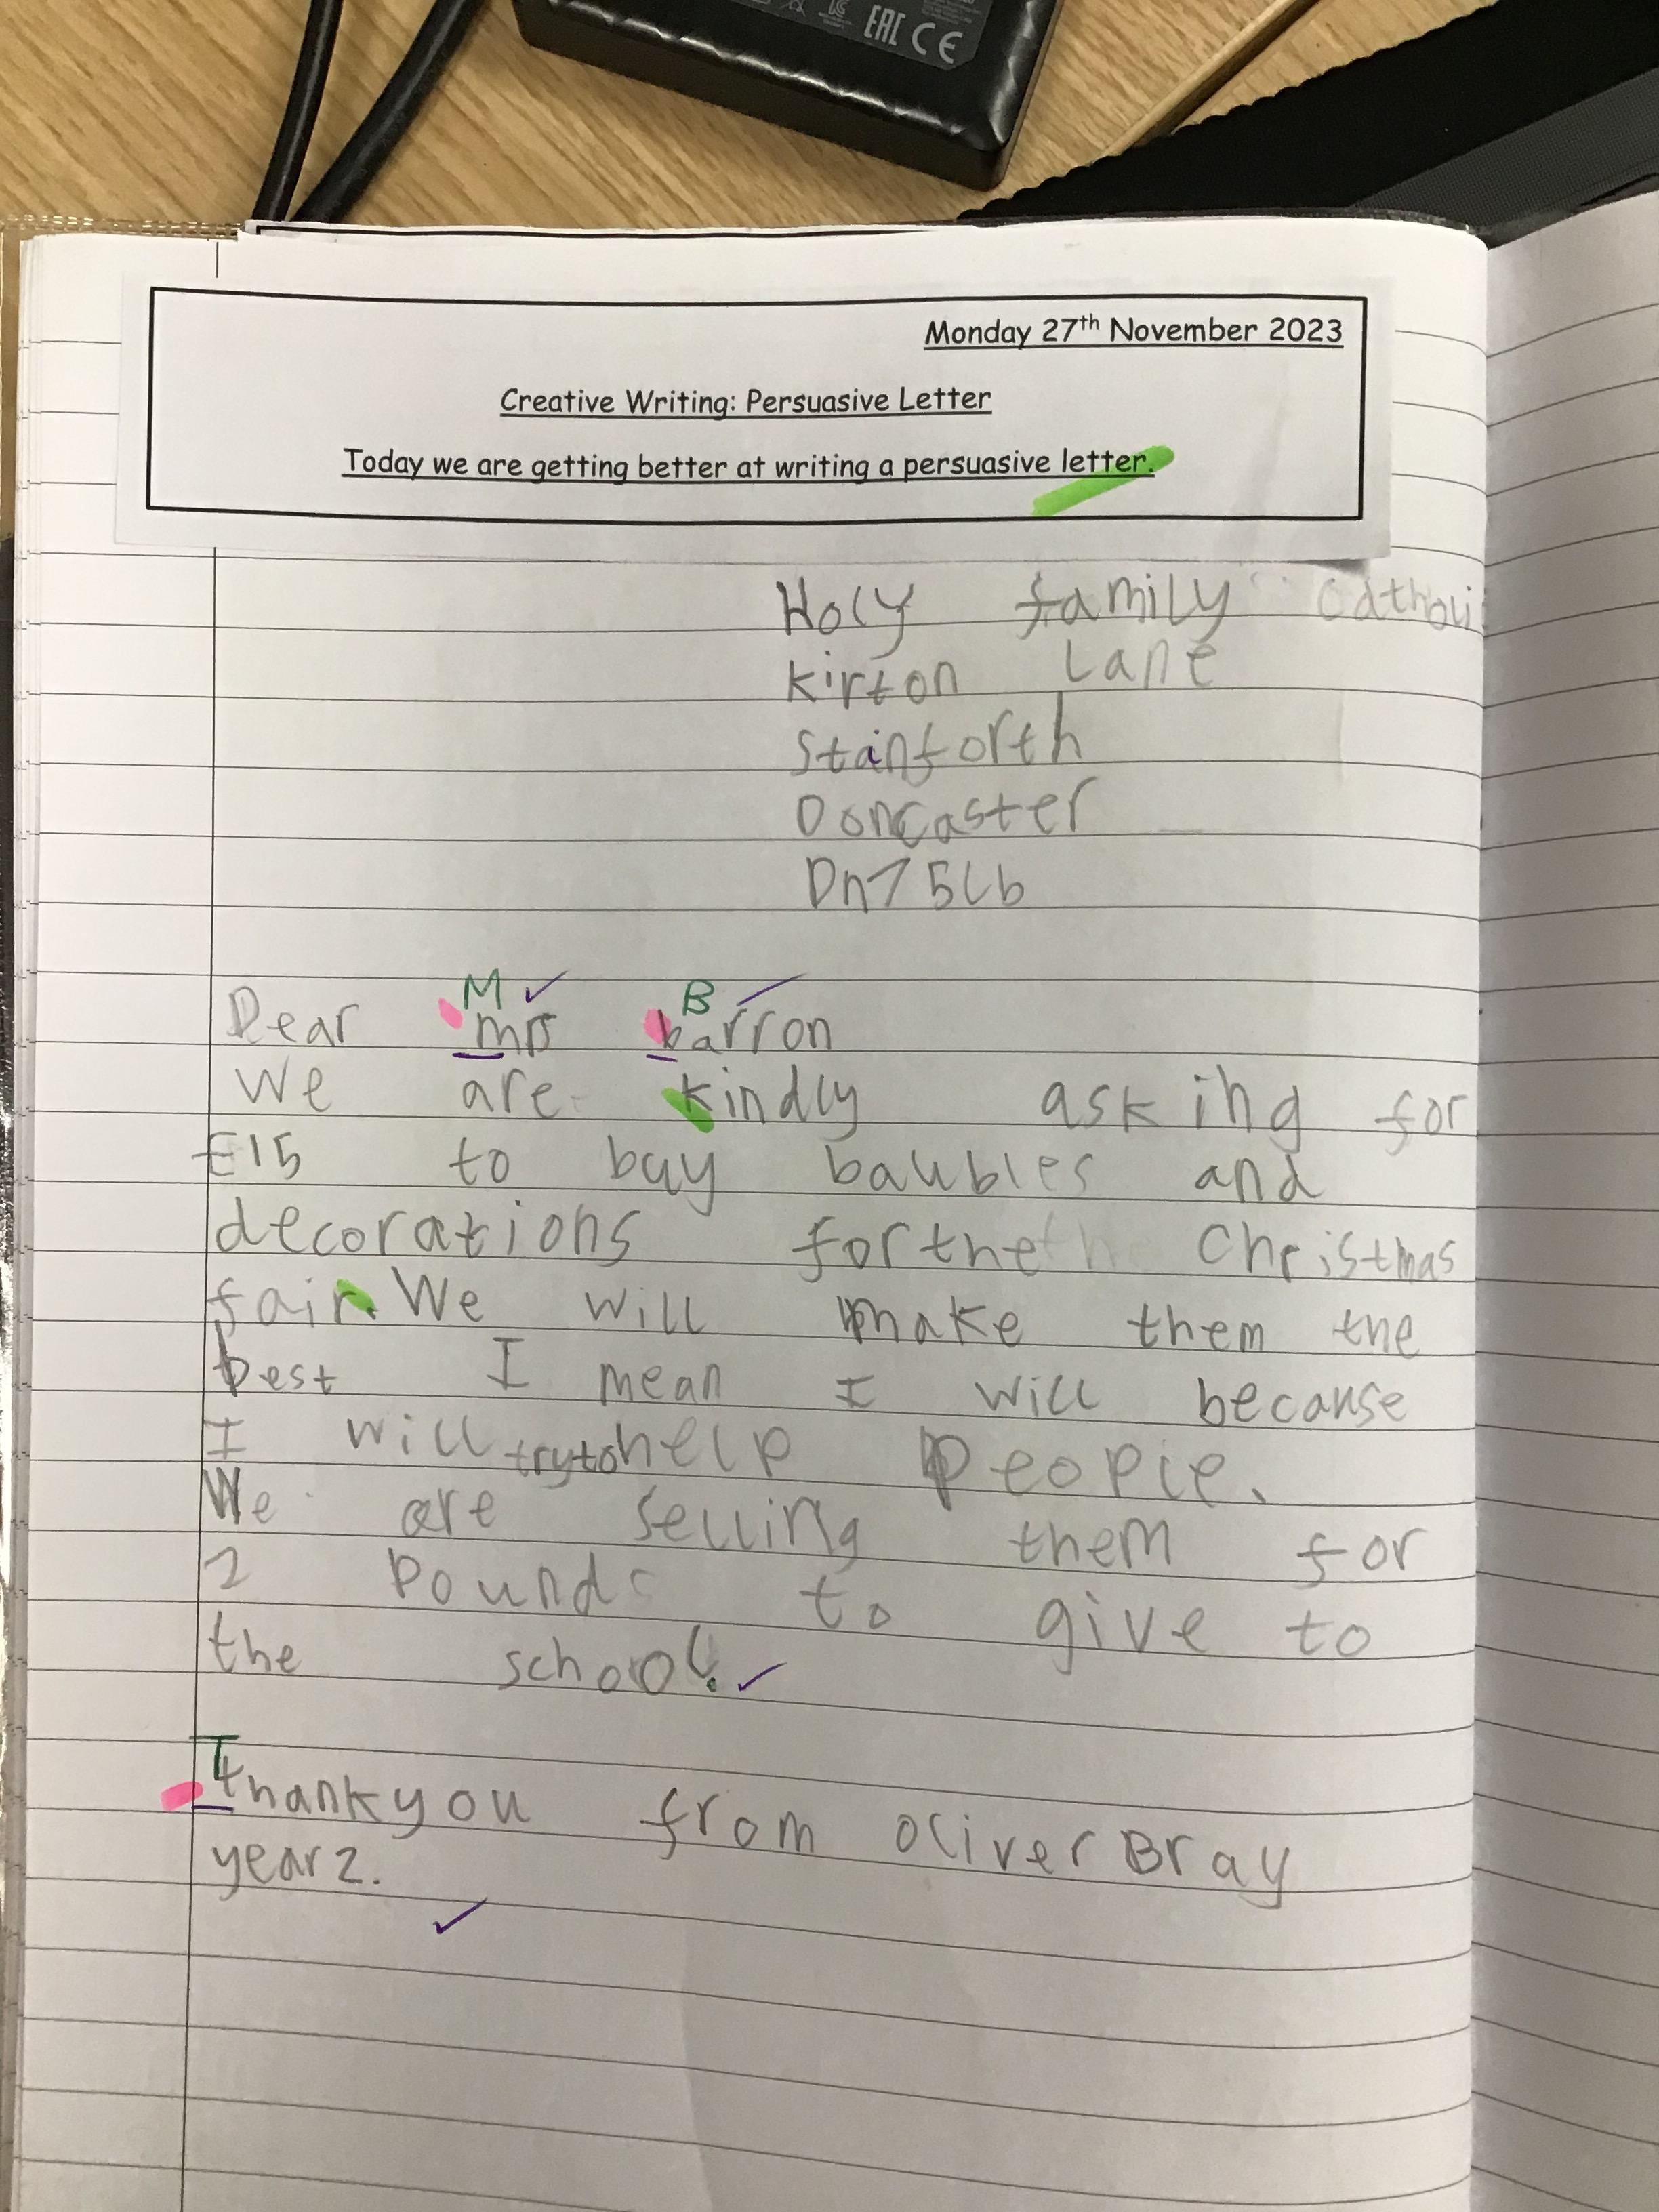 EAC CE
Monday 27th November 2023
Creative Writing: Persuasive Letter
Today we are getting better at writing a persuasive letter.
Holy family catholi
kirton Lane
Stainforth
Doncaster
Dn7 5lb
M B
Dear mrs barron
We are kindly asking for
£15 to buy baubles and
decorations for the th Christmas
fair. We will make them the
best I mean I will because
I will try to help people.
We are selling them for
2 pounds to give to
the school.
T
thankyou from oliver Bray
year 2.